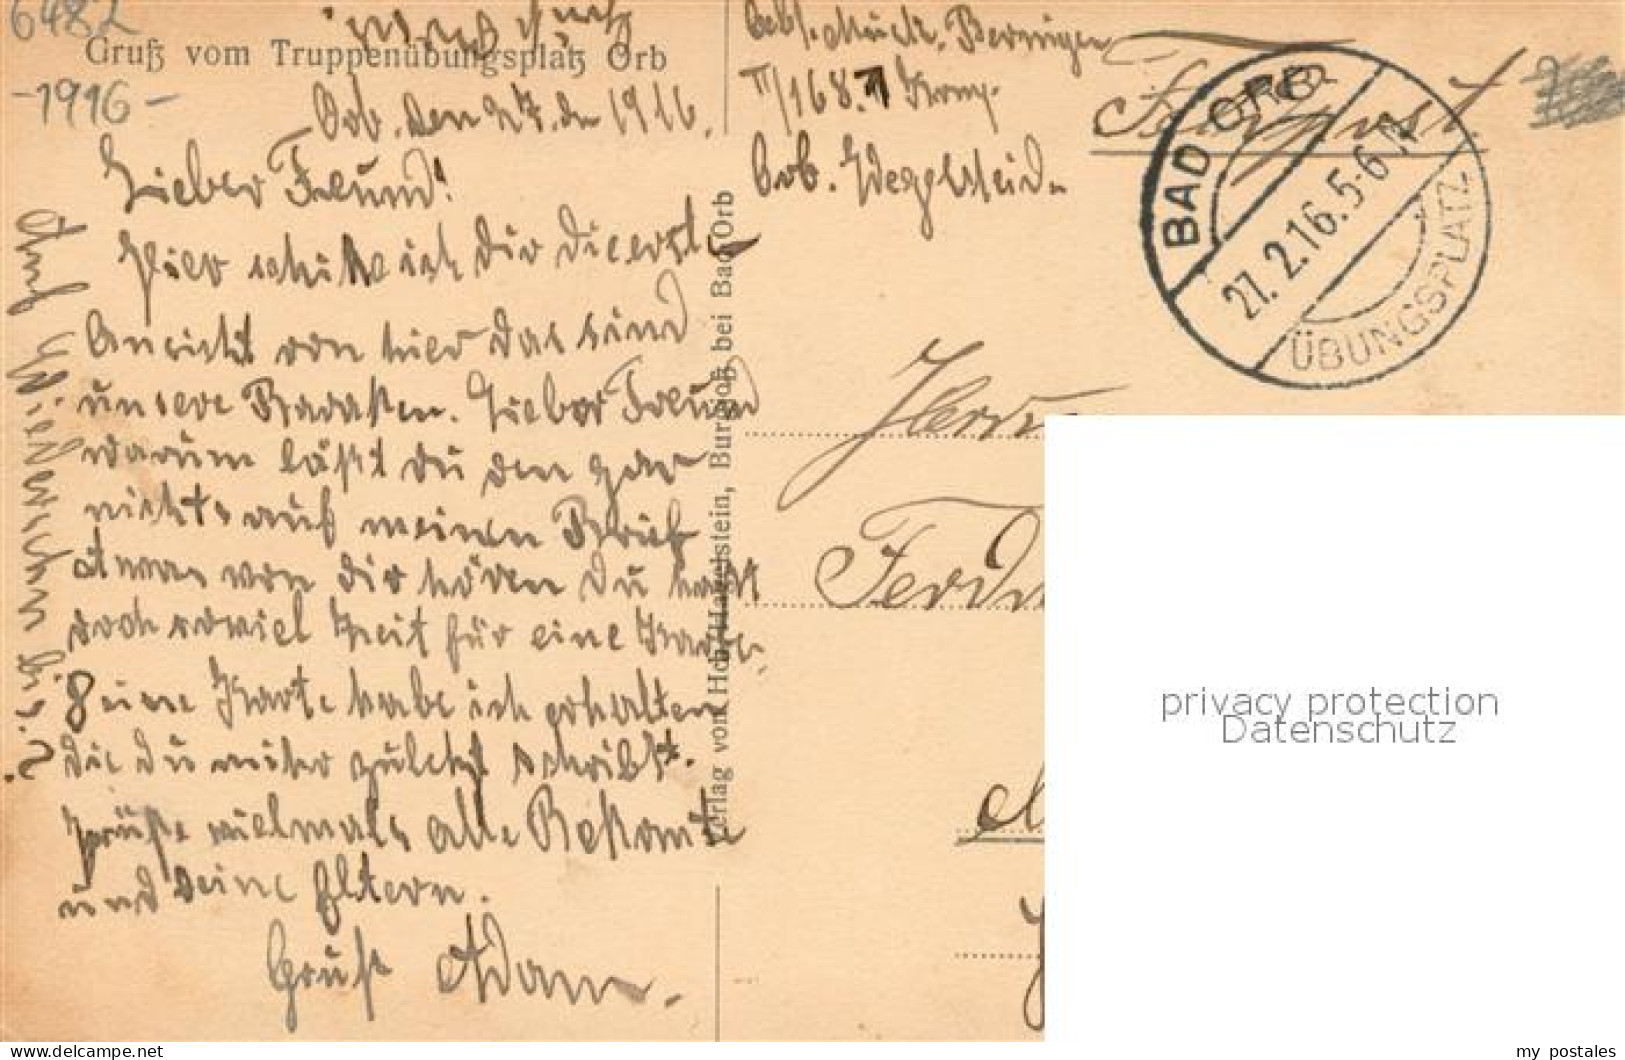 6482
Gruß vom Truppenübungsplatz Orb
-1916-
Orb. den 27. 1916.
Lieber Freund!
Hier schike ich dir die erst
Ansicht von hier das sind
unsere Baraken. Lieber Freund
warum läßt du den gar
nichts auf meinen Brief
etwas von dir hören du hast
doch soviel Zeit für eine Karte.
Deine Karte habe ich erhalten
die du mihr zuletzt schribst.
Grüße vielmals alle Bekante
und deine Eltern.
Gruß Adam.
Verlag von Hch. Hagelstein, Burgjoß bei Bad Orb
Abs. Musk.
II/168. Komp.
Orb. Wegelsteid.
Feldpost
BAD ORB
27. 2. 16. 5-6 N
ÜBUNGSPLATZ
Herrn
Ferd
privacy protection
Datenschutz
my postales
www.delcampe.net